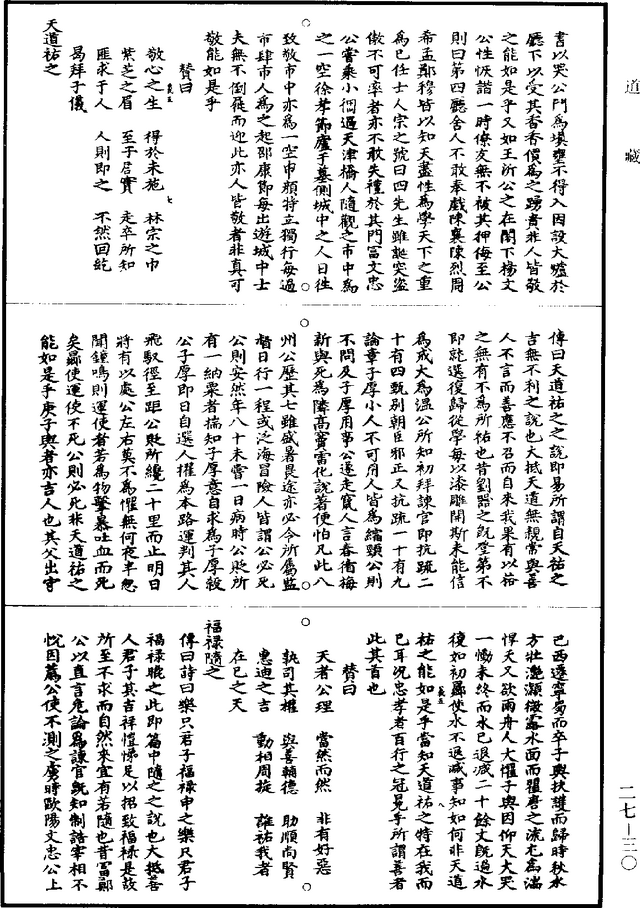 道藏
書以哭公門為墳壅不得入因設大爐於
廳下以受其香香價為之踴貴非人皆敬
之能如是乎又如王所公之在閣下楊文
公性恢諧一時僚友無不被其押侮至公
則曰第四廳舍人不敢奉戲陳襄陳烈周
希孟鄭穆皆以知天盡性為學天下之重
為已任士人宗之號曰四先生雖誕突盜
傲不可率者亦不敢失禮於其門富文忠
公嘗乘小轎過天津橋人隨觀之市中為
之一空徐孝節廬于墓側城中之人日往
致敬市中亦為一空申顏特立獨行每過
市肆市人為之起邵康節每出遊城中士
夫無不倒屣而迎此亦人皆敬者非真可
敬能如是乎
贊曰
敬心之生 得於未施 林宗之巾
紫芝之眉 至于君實 走卒所知
匪求于人 人則即之 不然回紇
曷拜子儀
天道祐之
傳曰天道祐之之說即易所謂自天祐之
吉無不利之說也大抵天道無親常與善
人不言而善應不召而自來我果有以祐
之無有不為所祐也昔劉器之既登第不
即就選復歸從學每以漆雕開斯未能信
為戒大為溫公所知初拜諫官即抗疏二
十有四甄別朝臣邪正又抗疏一十有九
論章子厚小人不可用人皆為縮頸公則
不問及子厚用事公遂走竄人言春循梅
新與死為隣高竇雷化說著便怕凡此八
州公歷其七雖盛暑畏途亦必令所屬監
督日行一程或泛海冒險人皆謂公必死
公則安然年八十未嘗一日病時公貶所
有一納粟者揣知子厚意自求為子厚殺
公子厚即日自選人擢為本路運判其人
飛馭徑至距公貶所纔二十里而止明日
將有以處公左右莫不為懼無何夜半忽
聞鐘鳴則運使者若為物擊暴吐血而死
矣曏使運使不死公則必死非天道祐之
能如是乎庚子輿者亦吉人也其父出守
巴西遷寧蜀而卒子輿扶護而歸時秋水
方壯灔澦微露水面而瞿唐之流尤為湍
悍天又欲雨舟人大懼子輿因仰天大哭
一慟未終而水已退减二十餘丈既過水
復如初曏使水不退减事知如何非天道
祐之能如是乎當知天道祐之特在我而
已耳况忠孝者百行之冠冕乎所謂善者
此其首也
贊曰
天者公理 當然而然 非有好惡
孰司其權 與善輔德 助順尚賢
惠迪之吉 動相周旋 誰祐我者
在已之天
福祿隨之
傳曰詩曰樂只君子福祿申之樂只君子
福祿膍之此即篇中隨之之說也大抵善
人君子其吉祥愷悌足以招致福祿是故
所至不求而自然來宜有若隨也昔富鄭
公以直言危論為諫官既知制誥宰相不
悅因薦公使不測之虜時歐陽文忠公上
二七－三〇